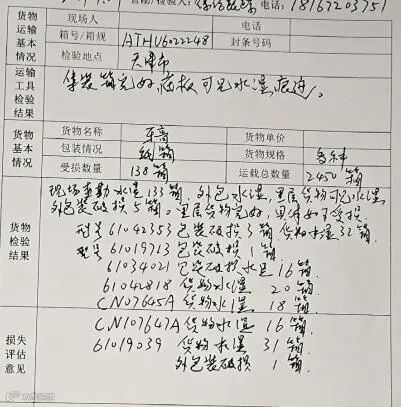 查勘/检验人: 电话: 18167203751
货物运输基本情况
现场人 电话
箱号/箱规 ATHU6022248 封条号码
检验地点 天津市
运输工具检验结果
集装箱完好 底板可见水湿痕迹。
货物基本情况
货物名称 牙膏 货物单价
包装情况 纸箱 货物规格 各种
受损数量 138箱 运载总数量 2450箱
货物检验结果
现场查勘水湿133箱, 外包水湿, 里层货物可见水湿
外包装破损5箱。里层货物完好,具体如下受损.
型号 61042353 包装破损3箱 货物水湿32箱
型号 61019713 包装破损1箱
61034021 包装破损水湿16箱.
61042818 货物水湿 20箱.
CN07645A 货物水湿 18箱.
损失评估意见
CN107647A 货物水湿 16箱.
61019039 货物水湿 31箱.
外包装破损 1箱.